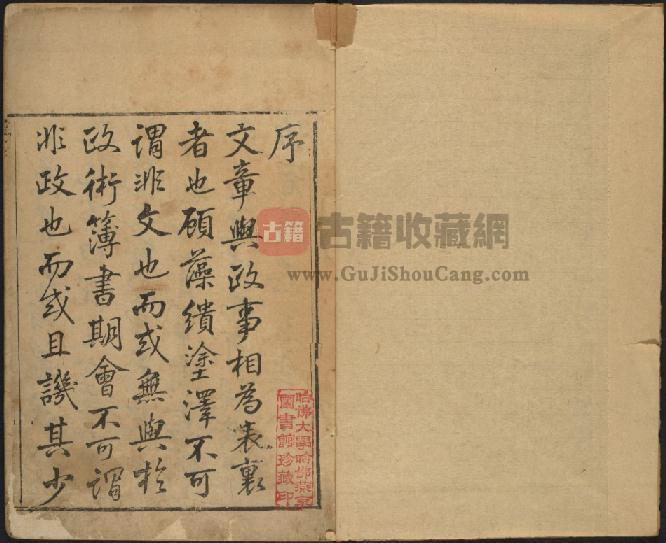 序
文章與政事相為表裏
者也顧藻繢塗澤不可
謂非文也而或無與於
政術簿書期會不可謂
非政也而或且譏其少
哈佛大學哈佛燕京
圖書館珍藏印
古籍
古籍收藏網
www.GuJiShouCang.com